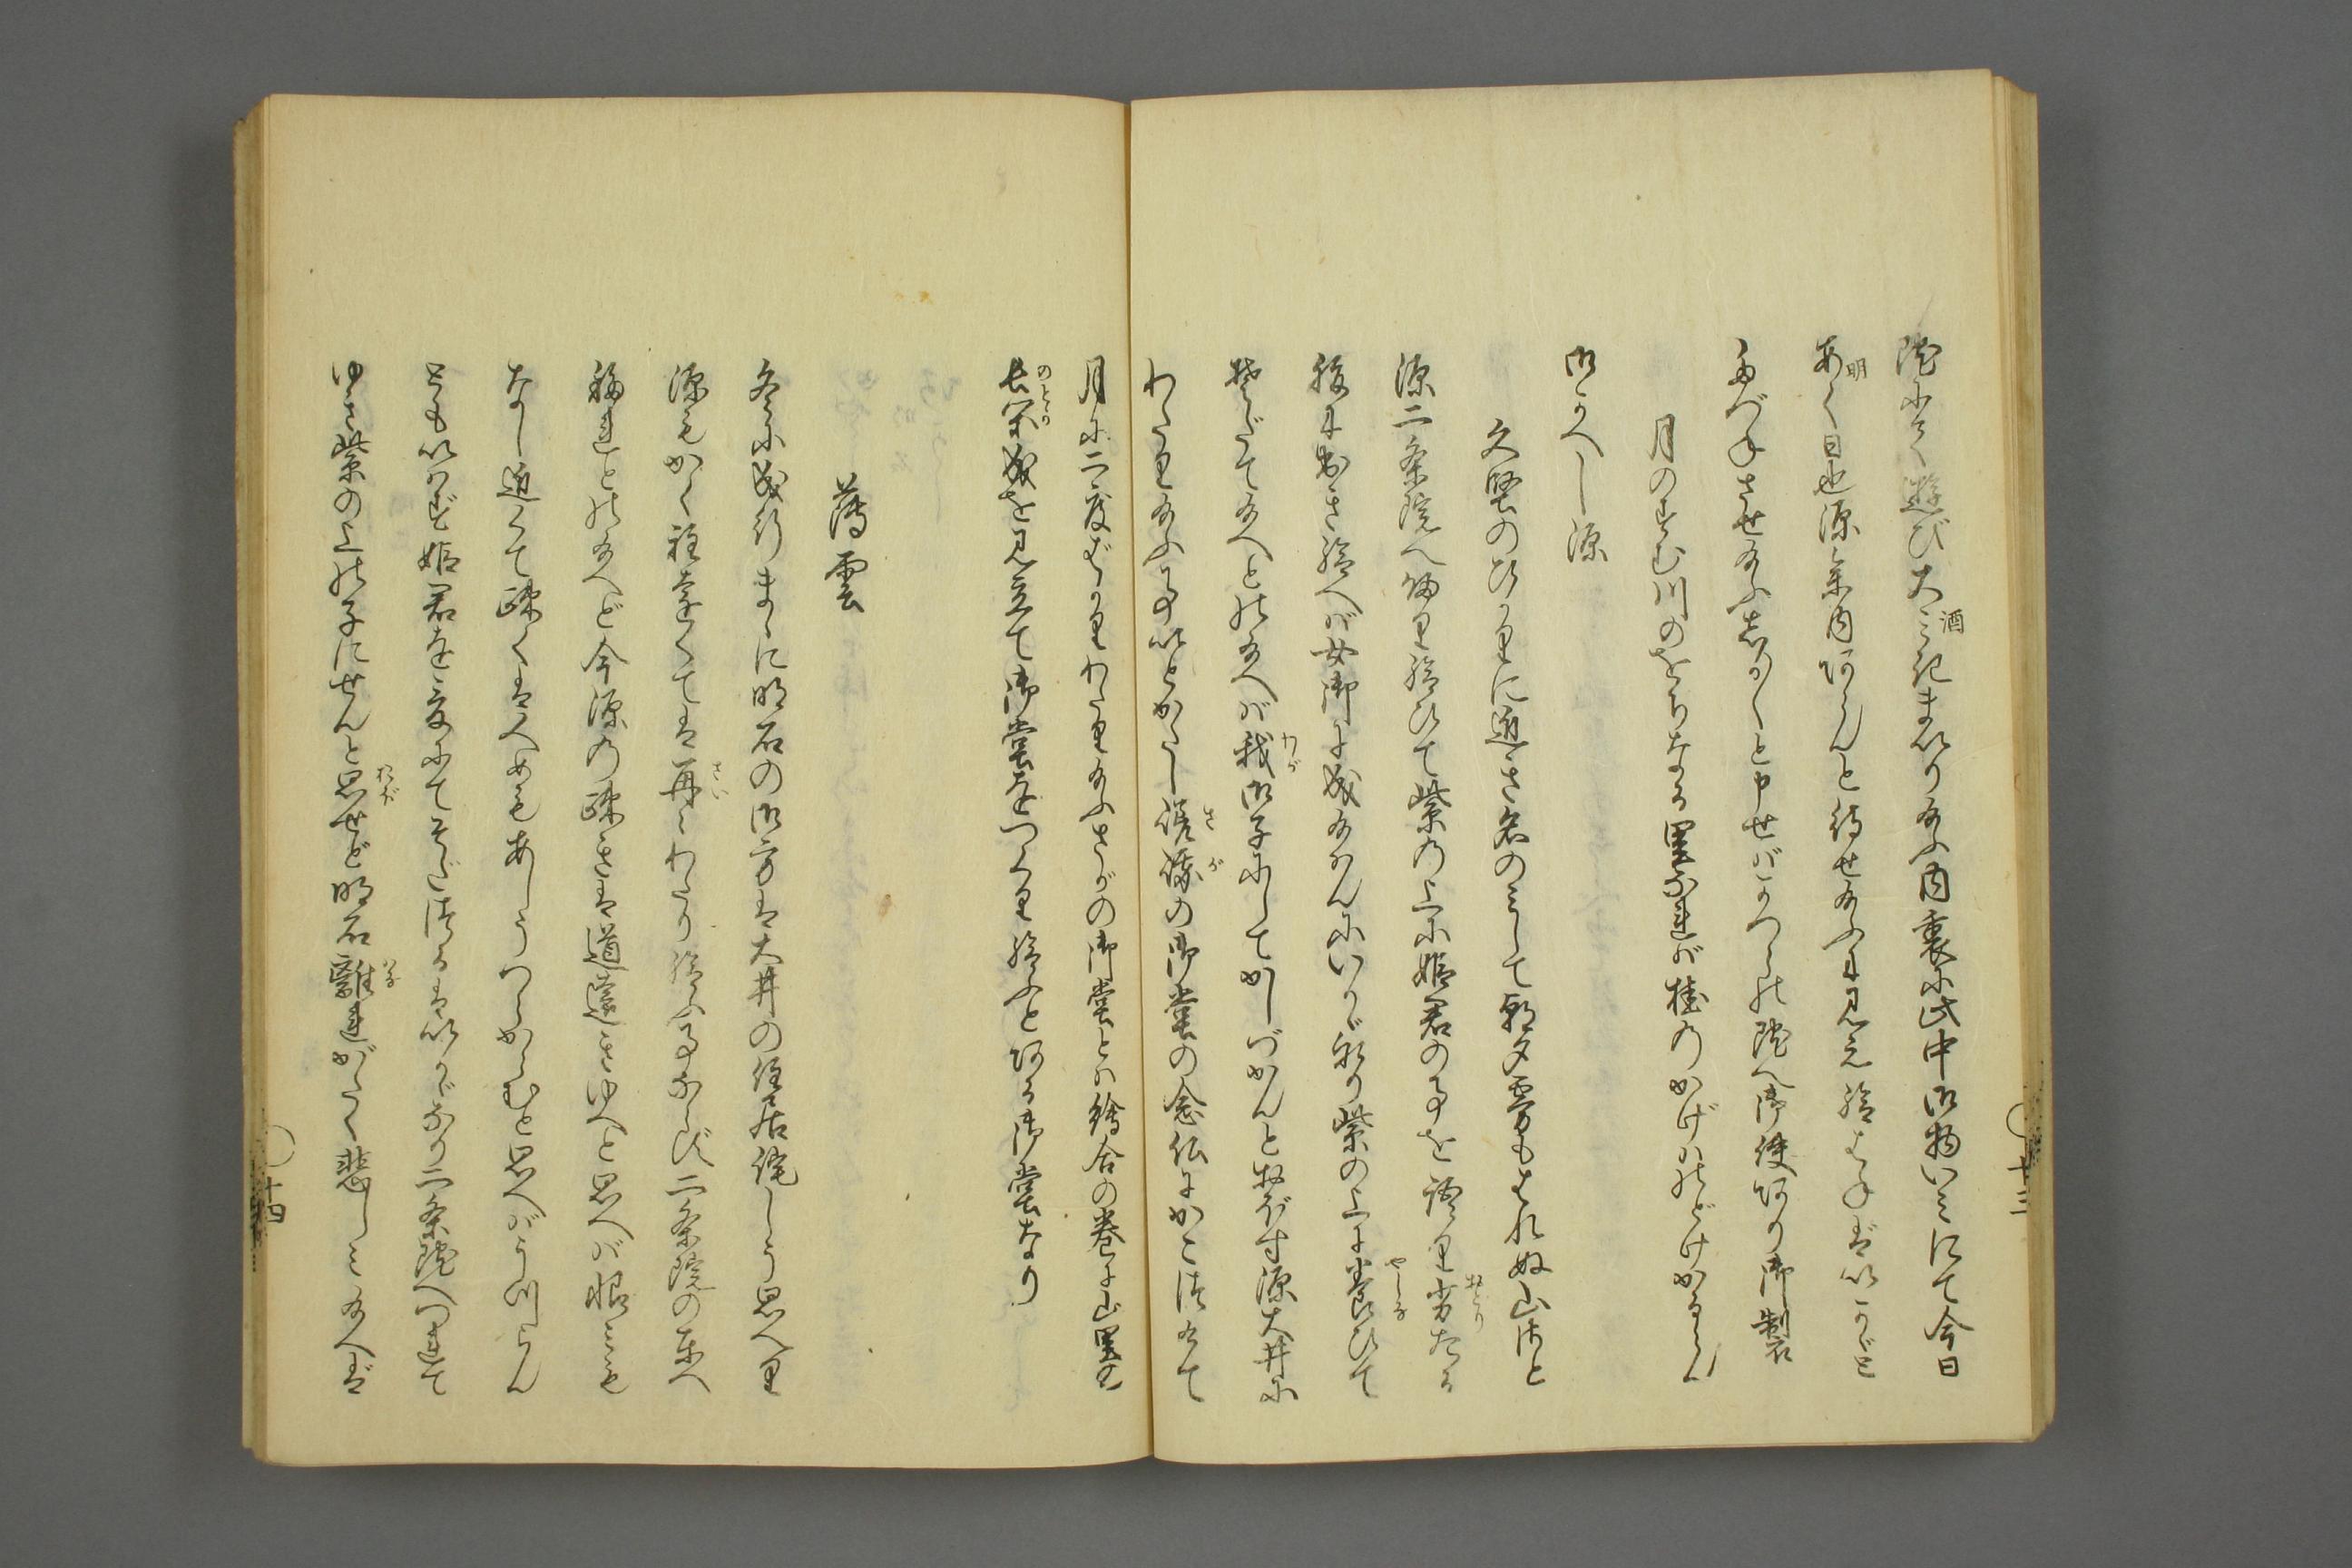 院にて遊び大みき酒まいり給ふ内裏に此中御物いみにて今日
あく明日也源参内あらんと待せ給ふに見え給はねばいかど
とがさせ給ふしか〳〵と申せばかつらの院へ御使あり御製
月のすむ川のをちなる里なればば桂のかげはのどけかるらん
御かへし源
久堅のひかりに近き名のみして朝夕霧もはれぬ山ざと
源二条院へ帰り給ひて紫の上に姫君の事を語り劣おとりたる
腹に出き給へば女御に成給はんにいかゞ也紫の上に養やしなひて
そだて給へとの給へば我わが御子にしてかしづかんと悦び給ふ源大井に
わたり給ふ事いとかたし嵯峨さがの御堂の念仏にかこつけて
月に二度ばかりわたり給ふさがの御堂とは絵合の巻に山里の
長閑のどか成を見立て御堂をつくり給ふと有る御堂なり
薄雲
冬に成行まゝに明石の御方は大井の住居侘しう思へり
源もかく程遠くては再さい〳〵わたり給ふ事ならず二条院の東へ
移れとの給へど今源の疎きは道遠きゆへと思へば恨みも
なし近くて疎くはへめもあしうつらからむと思へばうけひかん
ともいはず姫君を爰にてそだつるはいかゞなり二条院へつれて
ゆき紫の上の子にせんと思おぼせど明石離はなれがたく悲しみ給へば
十三
十四